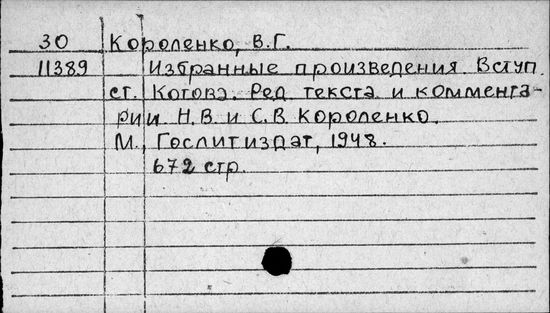 30 Короленко, В.Г.
11389 Избранные произведения. Вступ.
ст. Котова. Ред. текста и коммента-
рии Н.В. и С.В. Короленко.
М., Гослитиздат, 1948.
672 стр.